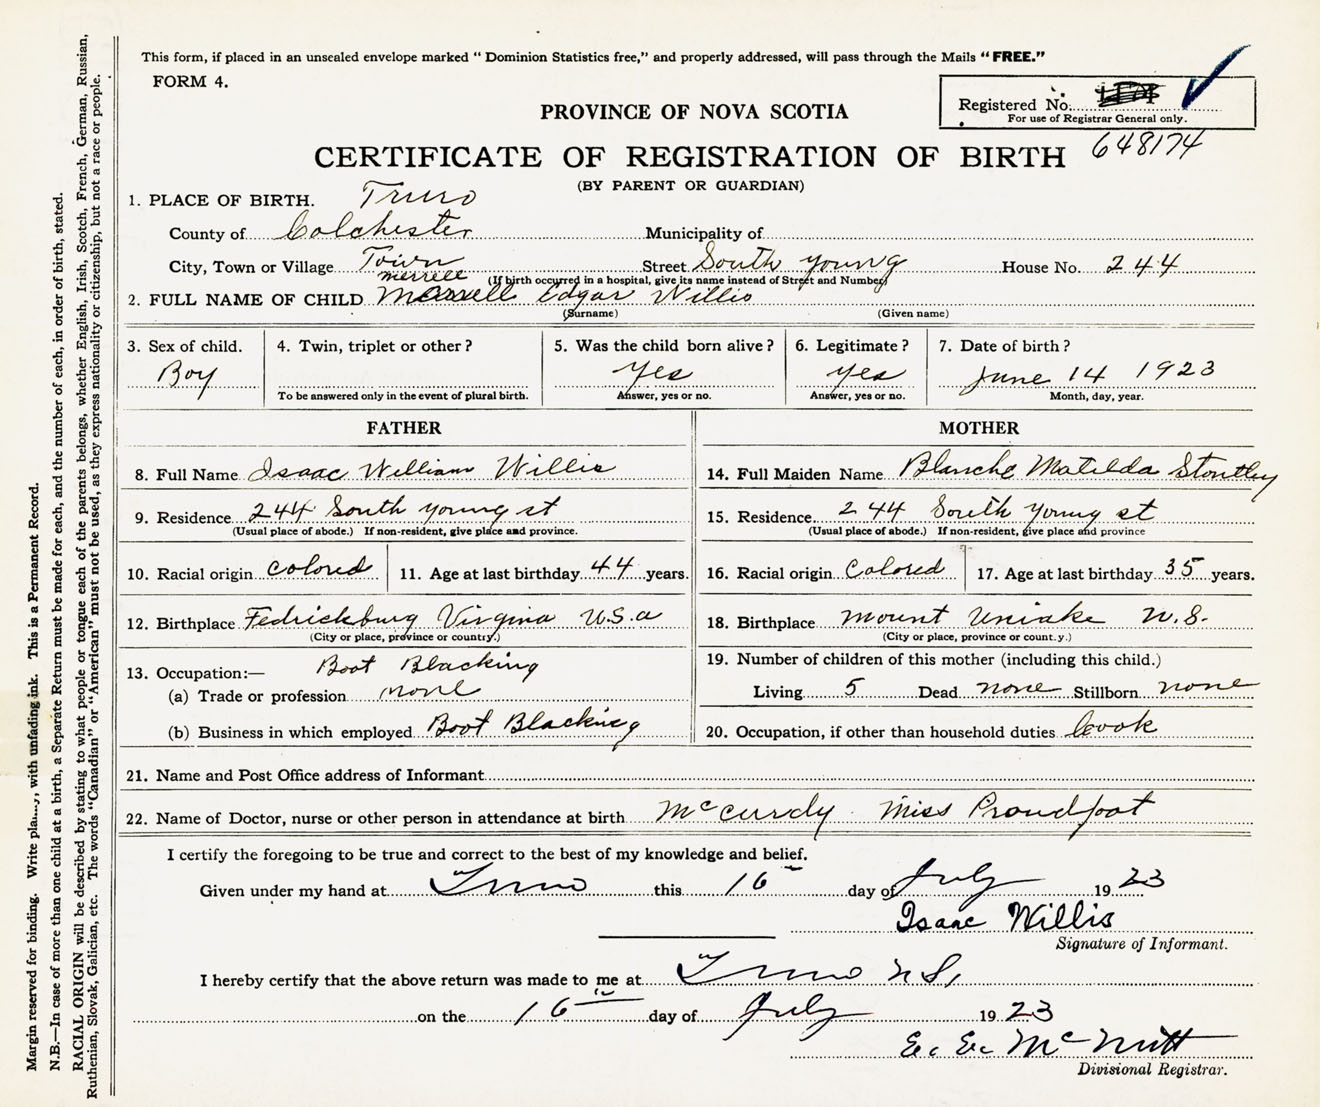 This form, if placed in an unsealed envelope marked "Dominion Statistics free," and properly addressed, will pass through the Mails "FREE."
FORM 4.
Registered No.
For use of Registrar General only.
648174
PROVINCE OF NOVA SCOTIA
CERTIFICATE OF REGISTRATION OF BIRTH
(BY PARENT OR GUARDIAN)
1. PLACE OF BIRTH. Truro
County of Colchester Municipality of
City, Town or Village Town Street South young House No. 244
(If birth occurred in a hospital, give its name instead of Street and Number)
merrell
2. FULL NAME OF CHILD Edgar Willis
(Surname) (Given name)
3. Sex of child. 4. Twin, triplet or other? 5. Was the child born alive? 6. Legitimate? 7. Date of birth?
Boy yes yes June 14 1923
To be answered only in the event of plural birth. Answer, yes or no. Answer, yes or no. Month, day, year.
FATHER
8. Full Name Isaac William Willis
9. Residence 244 South young st
(Usual place of abode.) If non-resident, give place and province.
10. Racial origin colored 11. Age at last birthday 44 years.
12. Birthplace Fedrickburg Virgina U.S.a
(City or place, province or country.)
13. Occupation:— Boot Blacking
(a) Trade or profession none
(b) Business in which employed Boot Blacking
MOTHER
14. Full Maiden Name Blanche Matilda Stoutley
15. Residence 244 South young st
(Usual place of abode.) If non-resident, give place and province
16. Racial origin Colored 17. Age at last birthday 35 years.
18. Birthplace mount uniake N.S.
(City or place, province or count.y.)
19. Number of children of this mother (including this child.)
Living 5 Dead none Stillborn none
20. Occupation, if other than household duties Cook
21. Name and Post Office address of Informant
22. Name of Doctor, nurse or other person in attendance at birth McCurdy Miss Proudfoot
I certify the foregoing to be true and correct to the best of my knowledge and belief.
Given under my hand at Truro this 16 day of July 1923
Isaac Willis
Signature of Informant.
I hereby certify that the above return was made to me at Truro N S,
on the 16th day of July 1923
E. E. McNutt
Divisional Registrar.
Margin reserved for binding. Write pla...., with unfading ink. This is a Permanent Record.
N.B.—In case of more than one child at a birth, a Separate Return must be made for each, and the number of each, in order of birth, stated.
RACIAL ORIGIN will be described by stating to what people or tongue each of the parents belongs, whether English, Irish, Scotch, French, German, Russian,
Ruthenian, Slovak, Galician, etc. The words "Canadian" or "American" must not be used, as they express nationality or citizenship, but not a race or people.